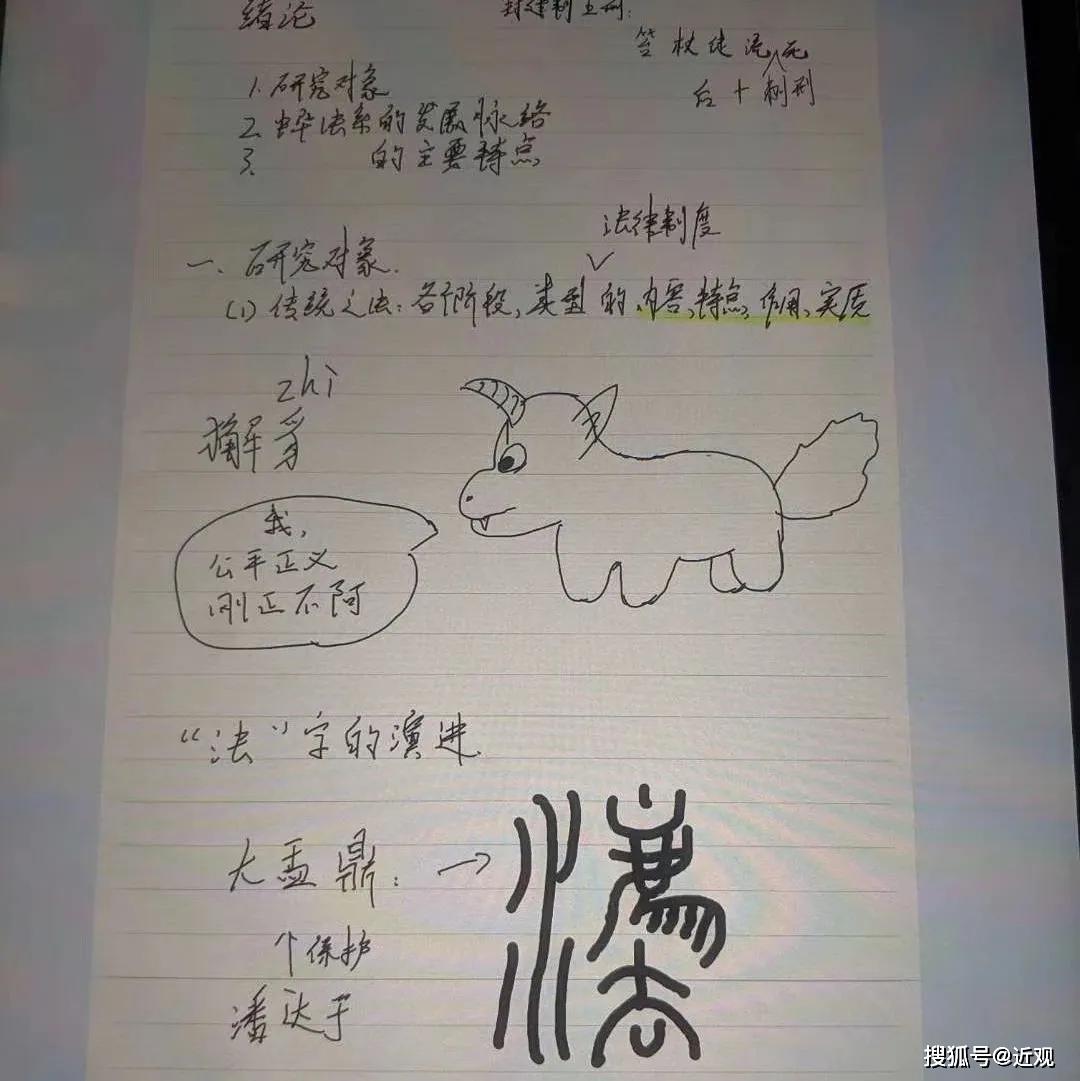 绪论
封建制五刑:
笞杖徒流死
后+刺刑
1. 研究对象
2. 中华法系的发展脉络
3. 的主要特点
法律制度
一、研究对象.
(1) 传统之法: 各个阶段, 类型的内容, 特点, 作用, 实质
zhi
獬豸
我,
公平正义
刚正不阿
“法”字的演进
大盂鼎: →
灋
个保护
潘达于
搜狐号@近观